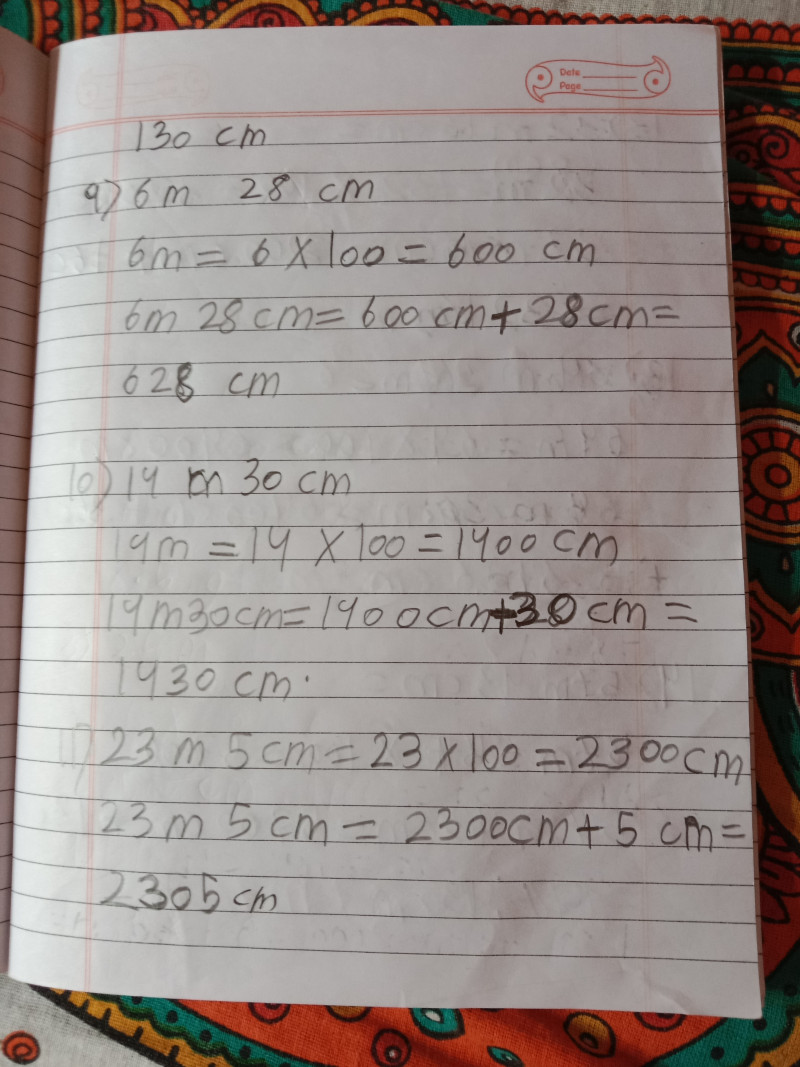 Date
Page
130 cm
9) 6m 28 cm
6m = 6 × 100 = 600 cm
6m 28 cm = 600 cm + 28 cm =
628 cm
10) 14 m 30 cm
14m = 14 × 100 = 1400 cm
14m30cm = 1400cm+30 cm =
1430 cm.
11) 23 m 5 cm = 23 × 100 = 2300cm
23 m 5 cm = 2300cm + 5 cm =
2305 cm